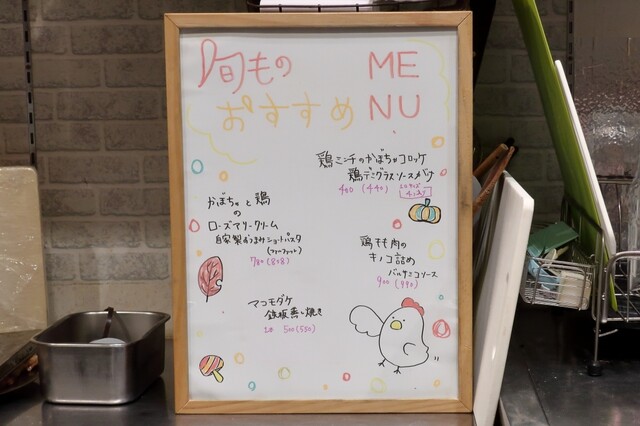 旬もの
おすすめ
MENU
鶏ミンチのかぼちゃコロッケ
鶏デミグラスソースがけ
400 (440)
かぼちゃと鶏
の
ローズマリークリーム
自家製おつまみショートパスタ
780 (858)
鶏もも肉の
キノコ詰め
バルサミコソース
900 (990)
マコモダケ
鉄板蒸し焼き
500 (550)